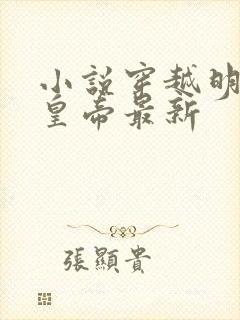 小説穿越明
皇帝最新
張顯貴